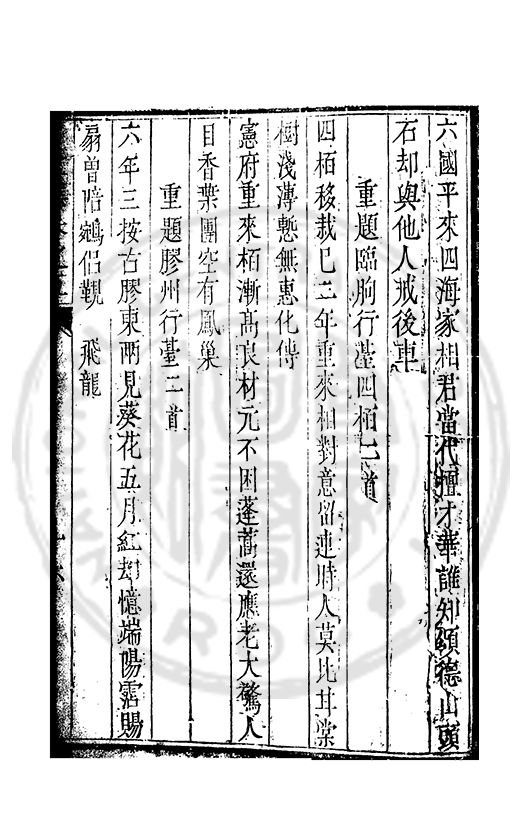 六國平來四海家相君當代擅才華誰知頌德山頭
石却與他人戒後車
重題臨朐行臺四栢二首
四栢移栽已三年重來相對意留連時人莫比甘棠
樹淺薄慙無惠化傳
憲府重來栢漸高良材元不困蓬蒿還應老大驚人
目香葉團空有鳳巢
重題膠州行臺二首
六年三按古膠東兩見葵花五月紅却憶端陽霑賜
扇曾陪鵷侶覲飛龍